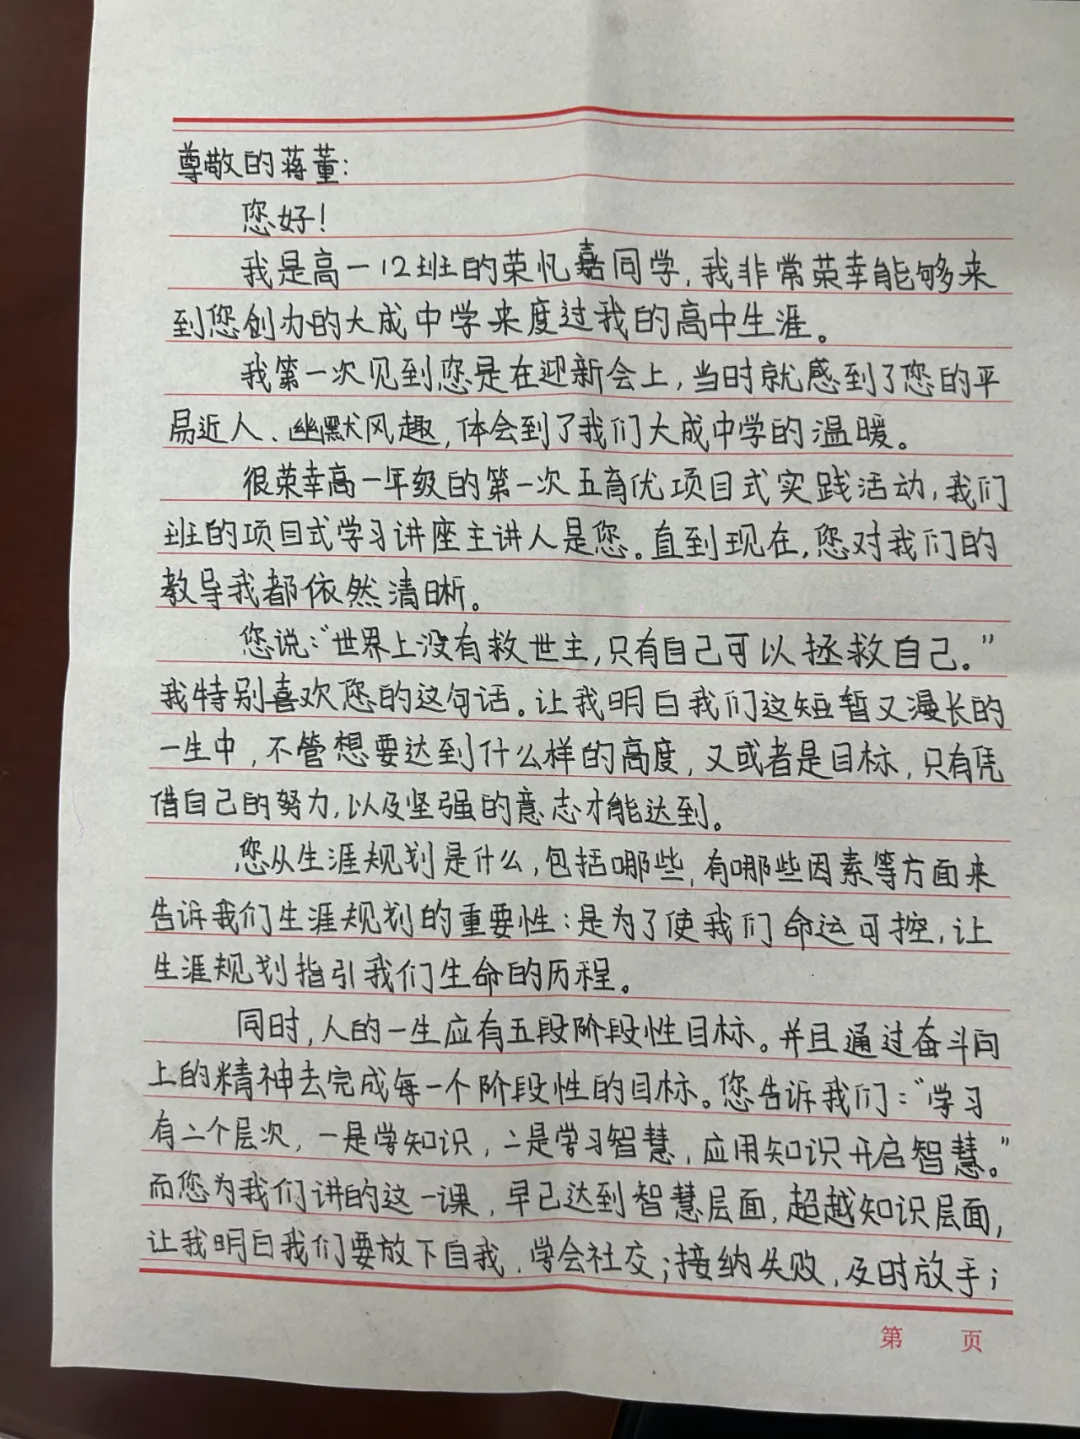 尊敬的蒋董：
您好！
我是高一12班的荣忆嘉同学，我非常荣幸能够来
到您创办的大成中学来度过我的高中生涯。
我第一次见到您是在迎新会上，当时就感到了您的平
易近人、幽默风趣，体会到了我们大成中学的温暖。
很荣幸高一年级的第一次五育优项目式实践活动，我们
班的项目式学习讲座主讲人是您。直到现在，您对我们的
教导我都依然清晰。
您说：“世界上没有救世主，只有自己可以拯救自己。”
我特别喜欢您的这句话。让我明白我们这短暂又漫长的
一生中，不管想要达到什么样的高度，又或者是目标，只有凭
借自己的努力，以及坚强的意志才能达到。
您从生涯规划是什么，包括哪些，有哪些因素等方面来
告诉我们生涯规划的重要性：是为了使我们命运可控，让
生涯规划指引我们生命的历程。
同时，人的一生应有五段阶段性目标。并且通过奋斗向
上的精神去完成每一个阶段性的目标。您告诉我们：“学习
有二个层次，一是学知识，二是学习智慧，应用知识开启智慧。”
而您为我们讲的这一课，早已达到智慧层面，超越知识层面，
让我明白我们要放下自我，学会社交；接纳失败，及时放手；
第 页